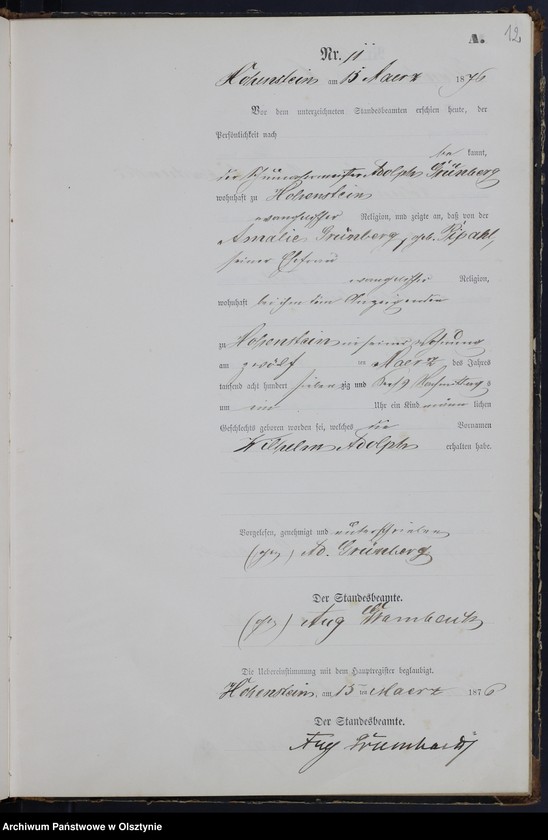 A.
12
Nr. 11
Hohenstein am 15 Maerz 1876
Vor dem unterzeichneten Standesbeamten erschien heute, der
Persönlichkeit nach
be kannt,
der Schuhmachermeister Adolph Grünberg
wohnhaft zu Hohenstein
evangelischer Religion, und zeigte an, daß von der
Amalie Grünberg, geb. Pipahl,
seiner Ehefrau
evangelischer Religion,
wohnhaft bei ihm dem Anzeigenden
zu Hohenstein in seiner Wohnung
am zwölf ten Maerz des Jahres
tausend acht hundert sieben zig und sechs Nachmittags
um ein Uhr ein Kind männ lichen
Geschlechts geboren worden sei, welches die Vornamen
Wilhelm Adolph erhalten habe.
Vorgelesen, genehmigt und unterschrieben
(gez) Ad. Grünberg
Der Standesbeamte.
(gez) Aug
Die Uebereinstimmung mit dem Hauptregister beglaubigt.
Hohenstein, am 15 ten Maerz 1876
Der Standesbeamte.
Aug
Archiwum Państwowe w Olsztynie